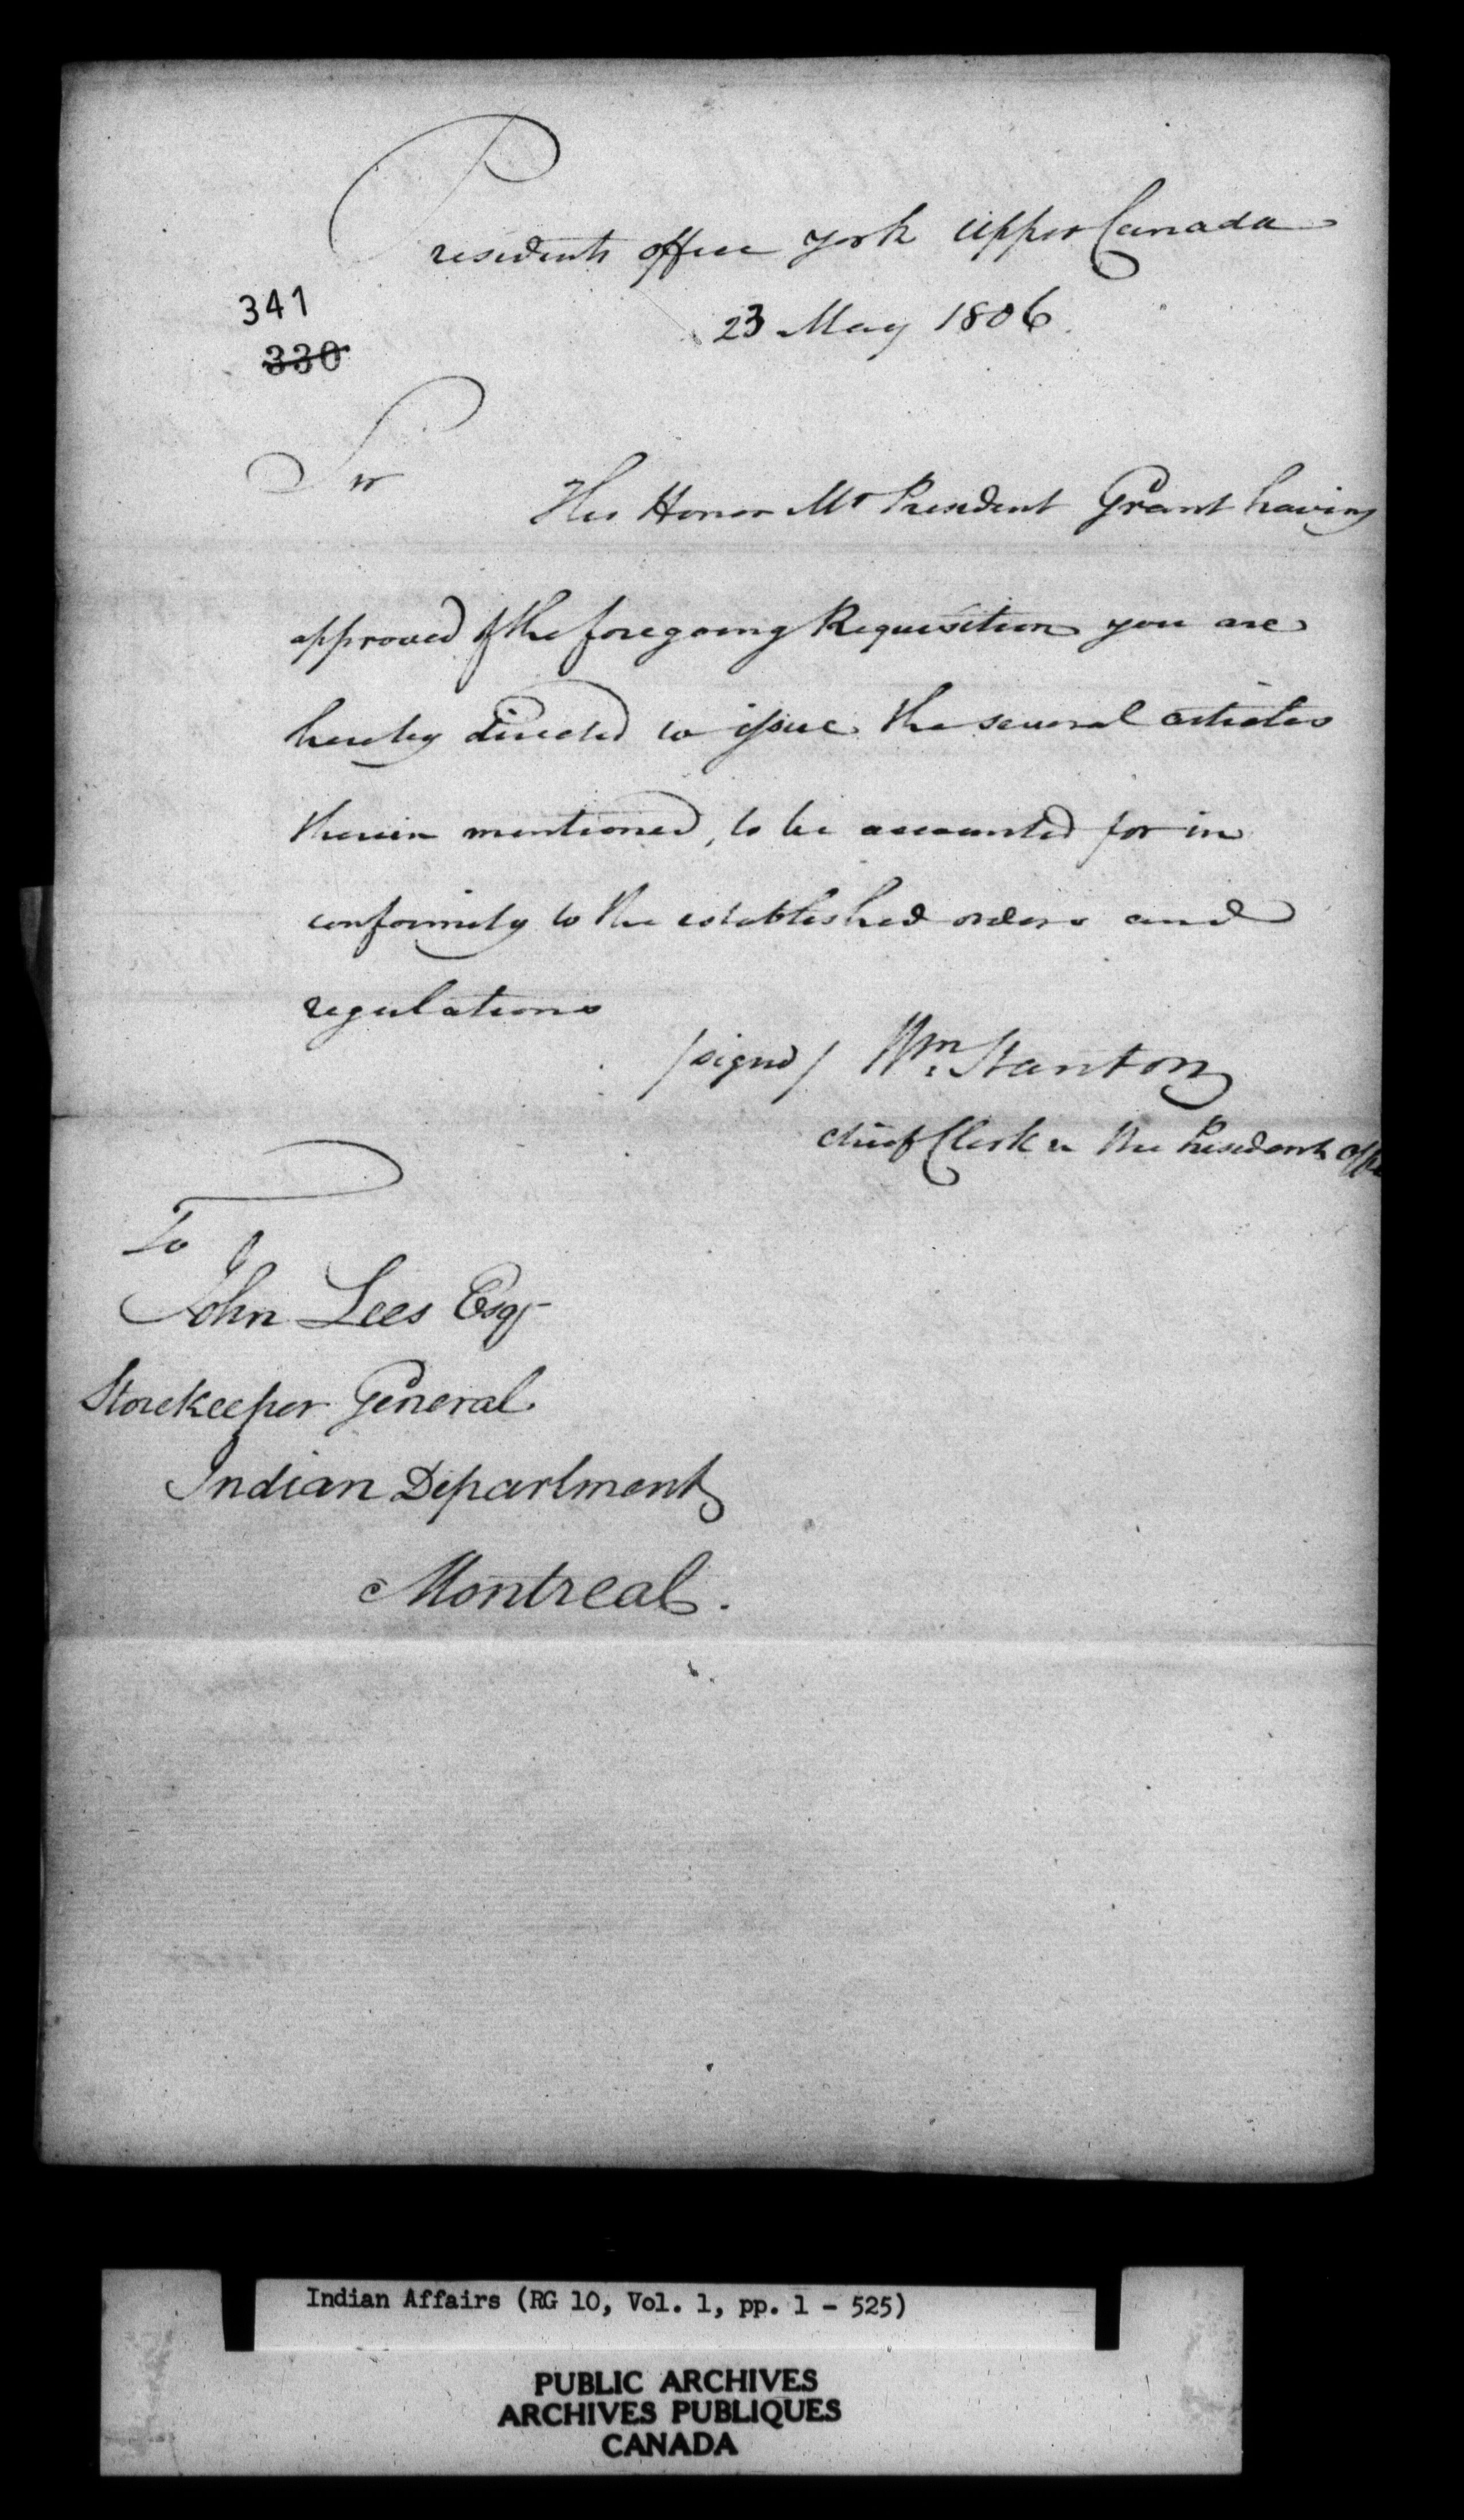 Presidents office York Upper Canada
23 May 1806.
341
330
Sir
His Honor Mr President Grant having
approved of the foregoing Requisition you are
hereby directed to issue the several articles
therein mentioned, to be accounted for in
conformity to the established orders and
regulations
/signed/ Wm. Stanton
Chief Clerk in the Presidents Offi
To
John Lees Esqr
Storekeeper General
Indian Department
Montreal.
Indian Affairs (RG 10, Vol. 1, pp. 1 - 525)
PUBLIC ARCHIVES
ARCHIVES PUBLIQUES
CANADA